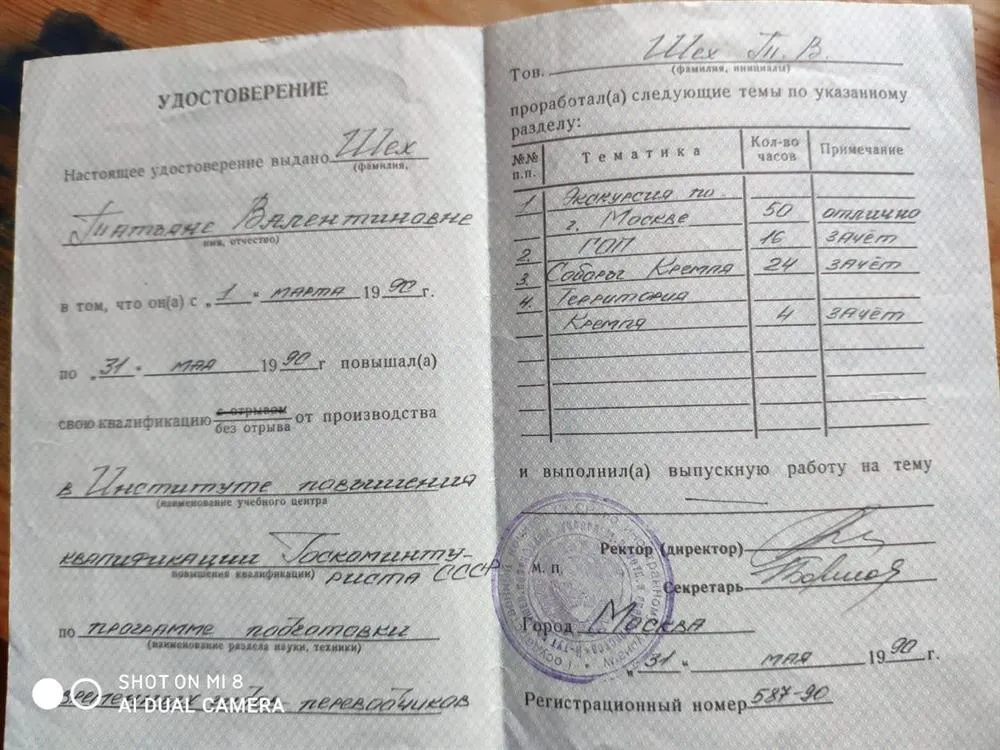 УДОСТОВЕРЕНИЕ
Настоящее удостоверение выдано Шех
(фамилия,
Татьяне Валентиновне
имя, отчество)
в том, что он(а) с „1" марта 1990 г.
по „31" мая 1990 г повышал(а)
свою квалификацию с отрывом
без отрыва от производства
в Институте повышения
(наименование учебного центра
квалификации Госкоминту-
повышения квалификации)
риста СССР
по программе подготовки
(наименование раздела науки, техники)
временных гидов переводчиков
SHOT ON MI 8
AI DUAL CAMERA
Тов. Шех Т. В.
(фамилия, инициалы)
проработал(а) следующие темы по указанному
разделу:
№№ п.п. Тематика Кол-во часов Примечание
1. Экскурсия по
г. Москве 50 отлично
2. ГОП 16 зачёт
3. Соборы Кремля 24 зачёт
4. Территория
Кремля 4 зачёт
и выполнил(а) выпускную работу на тему
Ректор (директор)
М. П.
Секретарь
Город Москва
„31" мая 1990 г.
Регистрационный номер 587-90